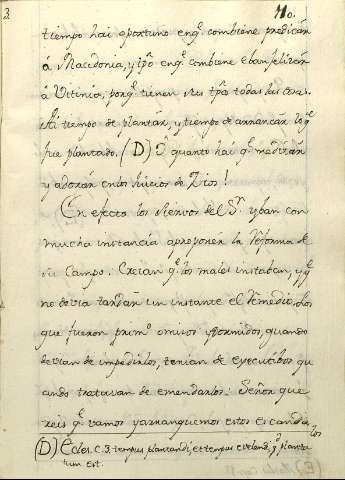 3.
110.
tiempo hai oportuno enq̃. combiene predicar
á Macedonia, y tp̃o enq̃. combiene Ebanjelizar
á Vitinia, porq̃. tienen sus tp̃os todas las cosas.
Ai tiempo de plantar, y tiempo de arrancar lo q̃.
fue plantado. (D) O quanto hai q̃. meditar
y adorar en los Juicios de Dios!
En efecto los siervos del S.r yban con
mucha instancia aproponer la reforma de
su Campo. Creian q̃. los males instaban, y q̃.
no devia tardar un instante el remedio. Los
que fueron prim.o omisos y dormidos, quando
devian de impedirlos, tenian de executibos qu
ando tratavan de emendarlos: Señor que
reis q̃. vamos yarranquemos estos escanda
los
(D) Ecles. C. 3. tempus plantandi, et tempus evelendi, q̃. planta
tum est.